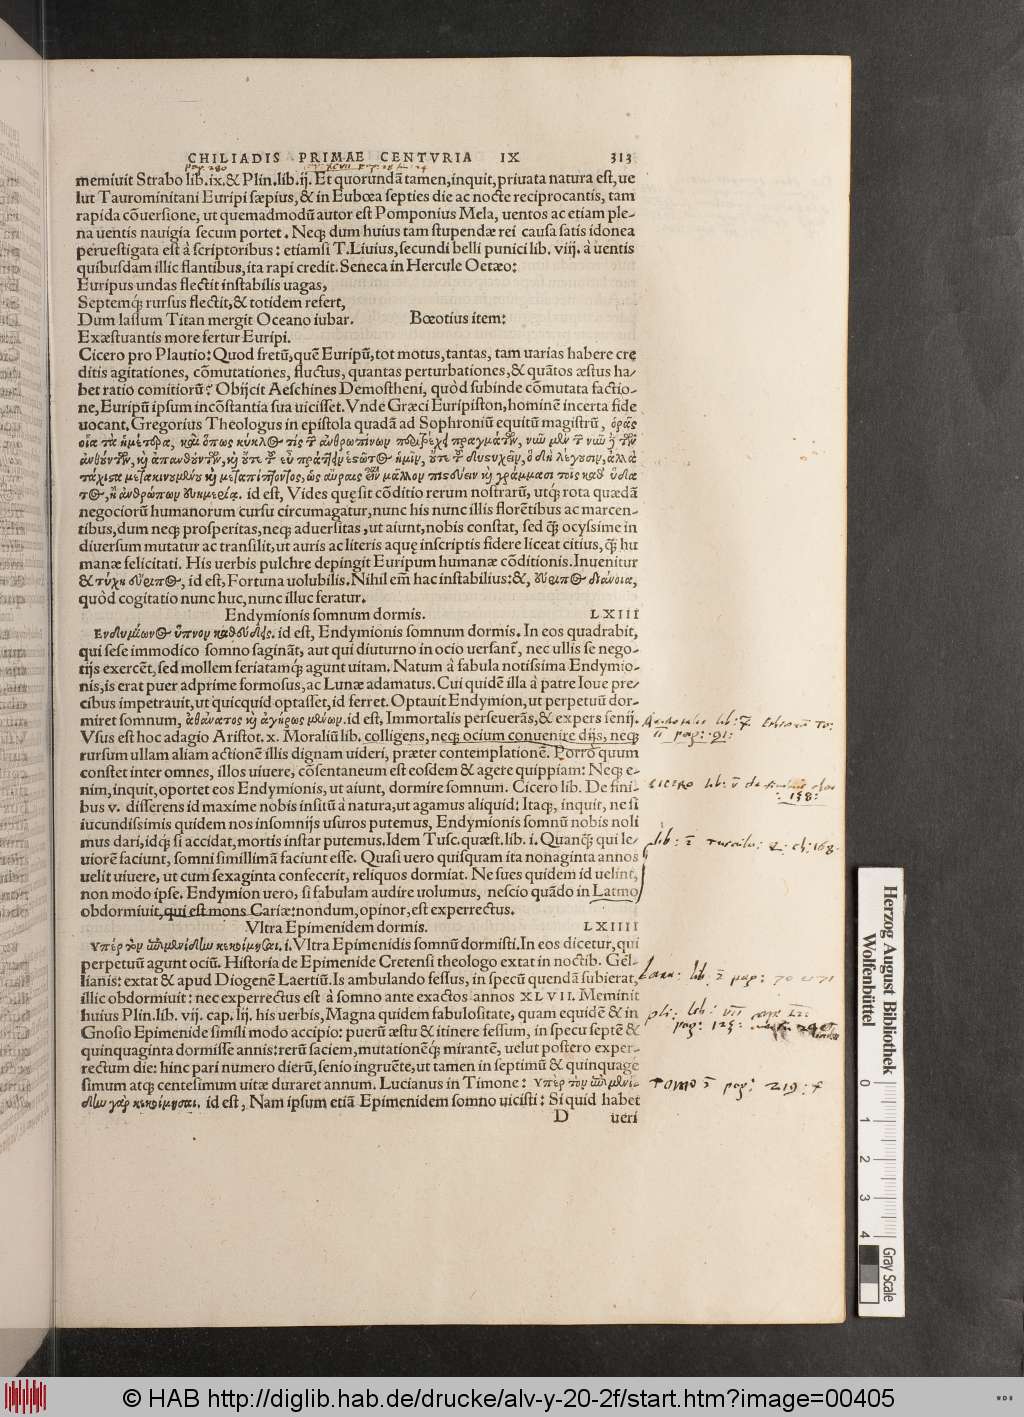 CHILIADIS PRIMAE CENTVRIA IX 313
memiuit Strabo lib.ix.& Plin.lib.ij. Et quorundā tamen, inquit, priuata natura est, ue
lut Taurominitani Euripi sæpius, & in Eubœa septies die ac nocte reciprocantis, tam
rapida cōuersione, ut quemadmodū autor est Pomponius Mela, uentos ac etiam ple-
na uentis nauigia secum portet. Neq; dum huius tam stupendæ rei causa satis idonea
peruestigata est à scriptoribus: etiamsi T. Liuius, secundi belli punici lib. viij. à uentis
quibusdam illic flantibus, ita rapi credit. Seneca in Hercule Oetæo:
Euripus undas flectit instabilis uagas,
Septemq; rursus flectit, & totidem refert,
Dum lassum Titan mergit Oceano iubar. Bœotius item:
Exæstuantis more fertur Euripi.
Cicero pro Plautio: Quod fretū, quē Euripū, tot motus, tantas, tam uarias habere cre
ditis agitationes, cōmutationes, fluctus, quantas perturbationes, & quātos æstus ha-
bet ratio comitiorū? Obijcit Aeschines Demostheni, quòd subinde cōmutata factio-
ne, Euripū ipsum incōstantia sua uicisset. Vnde Græci Euripiston, hominē incerta fide
uocant. Gregorius Theologus in epistola quadā ad Sophroniū equitū magistrū, ὁρᾷς
οἷα τὰ ἡμέτερα, καὶ ὅπως κύκλος τις τῶν ἀνθρωπίνων περιτρέχει πραγμάτων, νῦν μὲν τῶν νῦν δὲ τῶν
id est, Vides quę sit cōditio rerum nostrarū, utq; rota quædā
negociorū humanorum cursu circumagatur, nunc his nunc illis florētibus ac marcen-
tibus, dum neq; prosperitas, neq; aduersitas, ut aiunt, nobis constat, sed q̃; ocyssime in
diuersum mutatur ac transilit, ut auris ac literis aquę inscriptis fidere liceat citius, q̃; hu
manæ felicitati. His uerbis pulchre depingit Euripum humanæ cōditionis. Inuenitur
& τύχη εὔριπος, id est, Fortuna uolubilis. Nihil em̄ hac instabilius: &, εὔριπος διάνοια,
quòd cogitatio nunc huc, nunc illuc feratur.
Endymionis somnum dormis. LXIII
Ενδυμίωνος ὕπνον καθεύδεις. id est, Endymionis somnum dormis. In eos quadrabit,
qui sese immodico somno sagināt, aut qui diuturno in ocio uersant᷑, nec ullis se nego-
tijs exercēt, sed mollem feriatamq; agunt uitam. Natum à fabula notissima Endymio-
nis, is erat puer adprime formosus, ac Lunæ adamatus. Cui quidē illa à patre Ioue pre-
cibus impetrauit, ut quicquid optasset, id ferret. Optauit Endymion, ut perpetuū dor-
miret somnum, ἀθάνατος καὶ ἀγήρως μένων. id est, Immortalis perseuerās, & expers senij.
Vsus est hoc adagio Aristot. x. Moraliū lib. colligens, neq; ocium conuenire dijs, neq;
rursum ullam aliam actionē illis dignam uideri, præter contemplationē. Porrò quum
constet inter omnes, illos uiuere, cōsentaneum est eosdem & agere quippiam: Neq; e-
nim, inquit, oportet eos Endymionis, ut aiunt, dormire somnum. Cicero lib. De fini-
bus v. disserens id maxime nobis insitū à natura, ut agamus aliquid: Itaq;, inquit, ne si
iucundissimis quidem nos insomnijs usuros putemus, Endymionis somnū nobis noli
mus dari, idq; si accidat, mortis instar putemus. Idem Tusc. quæst. lib. i. Quanq̃; qui le-
uiorē faciunt, somni simillimā faciunt esse. Quasi uero quisquam ita nonaginta annos
uelit uiuere, ut cum sexaginta confecerit, reliquos dormiat. Ne sues quidem id uelint,
non modo ipse. Endymion uero, si fabulam audire uolumus, nescio quādo in Latmo
obdormiuit, qui est mons Cariæ: nondum, opinor, est experrectus.
Vltra Epimenidem dormis. LXIIII
Υπὲρ τὸν ἐπιμενίδην κεκοίμησαι. i. Vltra Epimenidis somnū dormisti. In eos dicetur, qui
perpetuū agunt ociū. Historia de Epimenide Cretensi theologo extat in noctib. Gel-
lianis: extat & apud Diogenē Laertiū. Is ambulando fessus, in specū quendā subierat,
illic obdormiuit: nec experrectus est à somno ante exactos annos XLVII. Meminit
huius Plin. lib. vij. cap. lij. his uerbis, Magna quidem fabulositate, quam equidē & in
Gnosio Epimenide simili modo accipio: puerū æstu & itinere fessum, in specu septē &
quinquaginta dormisse annis: rerū faciem, mutationēq; mirantē, uelut postero exper-
rectum die: hinc pari numero dierū, senio ingruēte, ut tamen in septimū & quinquage
simum atq; centesimum uitæ duraret annum. Lucianus in Timone: Υπὲρ τὸν ἐπιμενί-
δην γὰρ κεκοίμησαι. id est, Nam ipsum etiā Epimenidem somno uicisti: Si quid habet
D ueri
CICERO lib: v de
158:
lib: Tuscul:
lib: pag: 70
pli: lib: VII cap
pag: 125:
TOMO pag: 219:
Herzog August Bibliothek
Wolfenbüttel
0 1 2 3 4
Gray Scale
© HAB http://diglib.hab.de/drucke/alv-y-20-2f/start.htm?image=00405